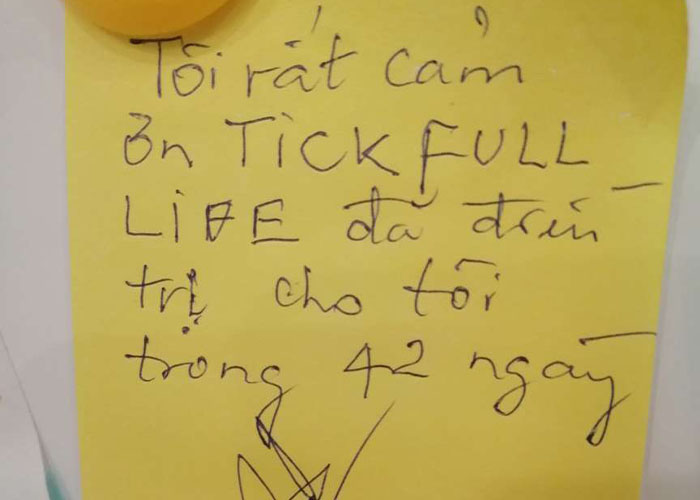 Tôi rất cảm
ơn TiCK FULL
LiFE đã điều
trị cho tôi
trong 42 ngày